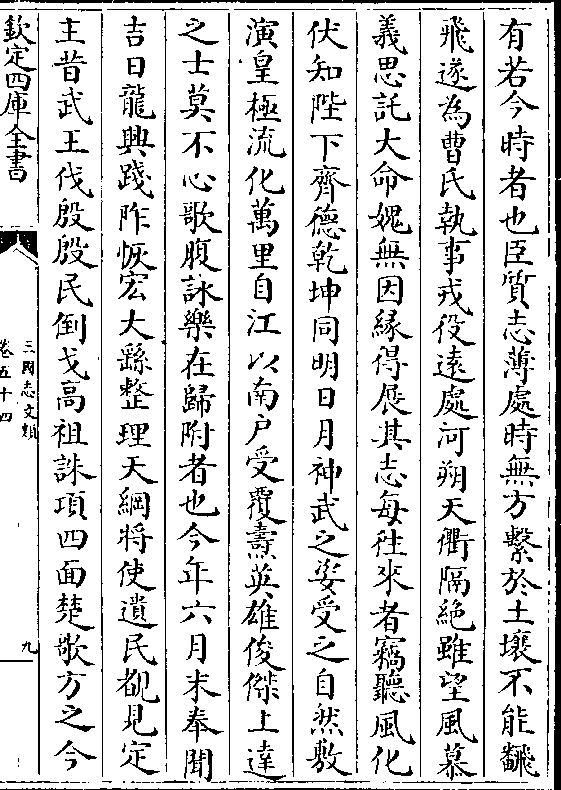 有若今時者也臣質志薄處時無方繫於土壤不能翻
飛遂為曹氏執事戎役遠處河朔天衢隔絶雖望風慕
義思託大命媿無因緣得展其志每往來者竊聽風化
伏知陛下齊德乾坤同明日月神武之姿受之自然敷
演皇極流化萬里自江以南户受覆燾英雄俊傑上達
之士莫不心歌腹詠樂在歸附者也今年六月末奉聞
吉日龍興踐阼恢宏大繇整理天綱將使遺民覩見定
主昔武王伐殷殷民倒戈高祖誅項四面楚歌方之今
欽定四庫全書
三國志文類
卷五十四
九